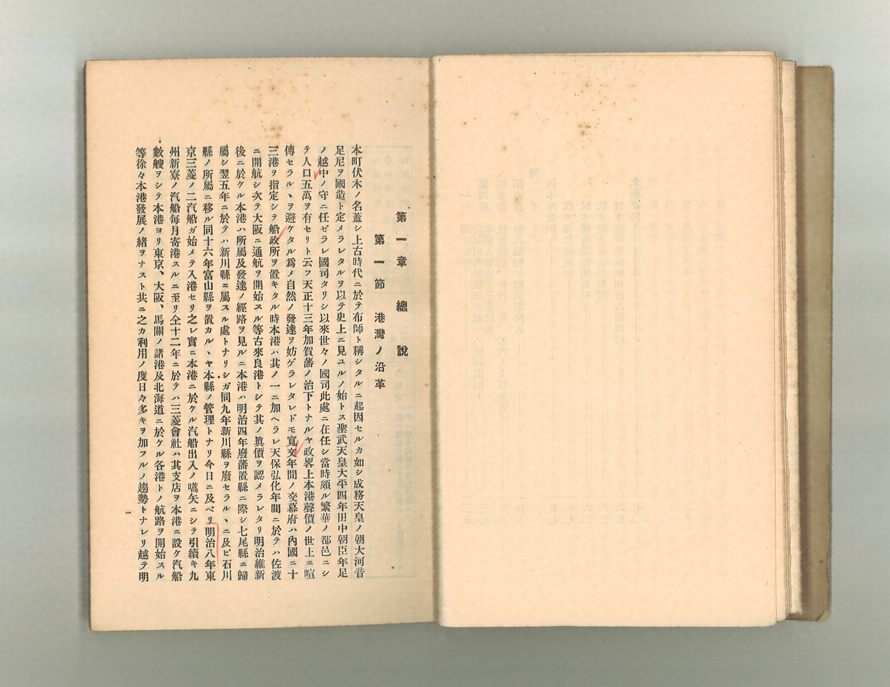 第一章 總說
第一節 港灣ノ沿革
本町伏木ノ名蓋シ上古時代ニ於テ布師ト稱シタルニ起因セルカ如シ成務天皇ノ朝大河音
足尼ヲ國造ト定メラレタルヲ以テ史上ニ見ユルノ始トス聖武天皇大平四年田中朝臣年足
ノ越中ノ守ニ任ゼラレ國司タリシ以來世々ノ國司此處ニ在任シ當時頗ル繁華ノ都邑ニシ
テ人口五萬ヲ有セリト云フ天正十三年加賀藩ノ治下トナルヤ政畧上本港聲價ノ世上ニ喧
傳セラルヽヲ避ケタル爲メ自然ノ發達ヲ妨ゲラレタレドモ寬文年間ノ交幕府ハ內國ニ十
三港ヲ指定シテ船政所ヲ置キタル時本港ハ其ノ一ニ加ヘラレ天保弘化年間ニ於テハ佐渡
ニ開航シ次テ大阪ニ通航ヲ開始スル等古來良港トシテ其ノ眞價ヲ認メラレタリ明治維新
後ニ於ケル本港ハ所屬及發達ノ經路ヲ見ルニ本港ハ明治四年廢藩置縣ニ際シ七尾縣ニ歸
屬シ翌五年ニ於テハ新川縣ニ屬スル處トナリシガ同九年新川縣ヲ廢セラルヽニ及ビ石川
縣ノ所屬ニ移ル同十六年富山縣ヲ置カルヽヤ本縣ノ管理トナリ今日ニ及ベリ明治八年東
京三菱ノ二汽船ガ始メテ入港セリ之レ實ニ本港ニ於ケル汽船出入ノ嚆矢ニシテ引續キ九
州新寮ノ汽船每月寄港スルニ至リ仝十二年ニ於テハ三菱會社ハ其支店ヲ本港ニ設ケ汽船
數艘ヲシテ本港ヨリ東京、大阪、馬關ノ諸港及北海道ニ於ケル各港トノ航路ヲ開始スル
等徐々本港發展ノ緒ヲナスト共ニ之カ利用ノ度日々多キヲ加フルノ趨勢トナレリ越テ明
一